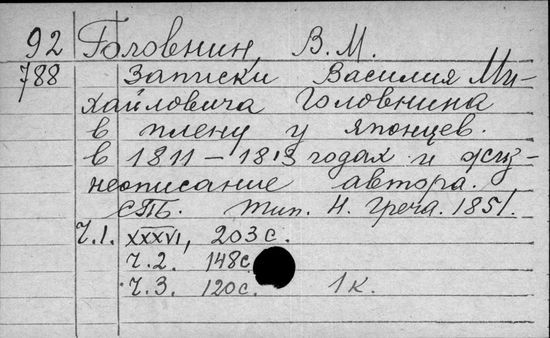 92 Головнин, В. М.
788 Записки Василия Ми-
хайловича Головнина
в плену у японцев.
в 1811 – 1813 годах и жиз-
неописание автора.
СПБ. тип. Н. Греча. 1851.
Ч.1. XXXVI, 203 с.
Ч.2. 148с
Ч.3. 120с. 1 к.